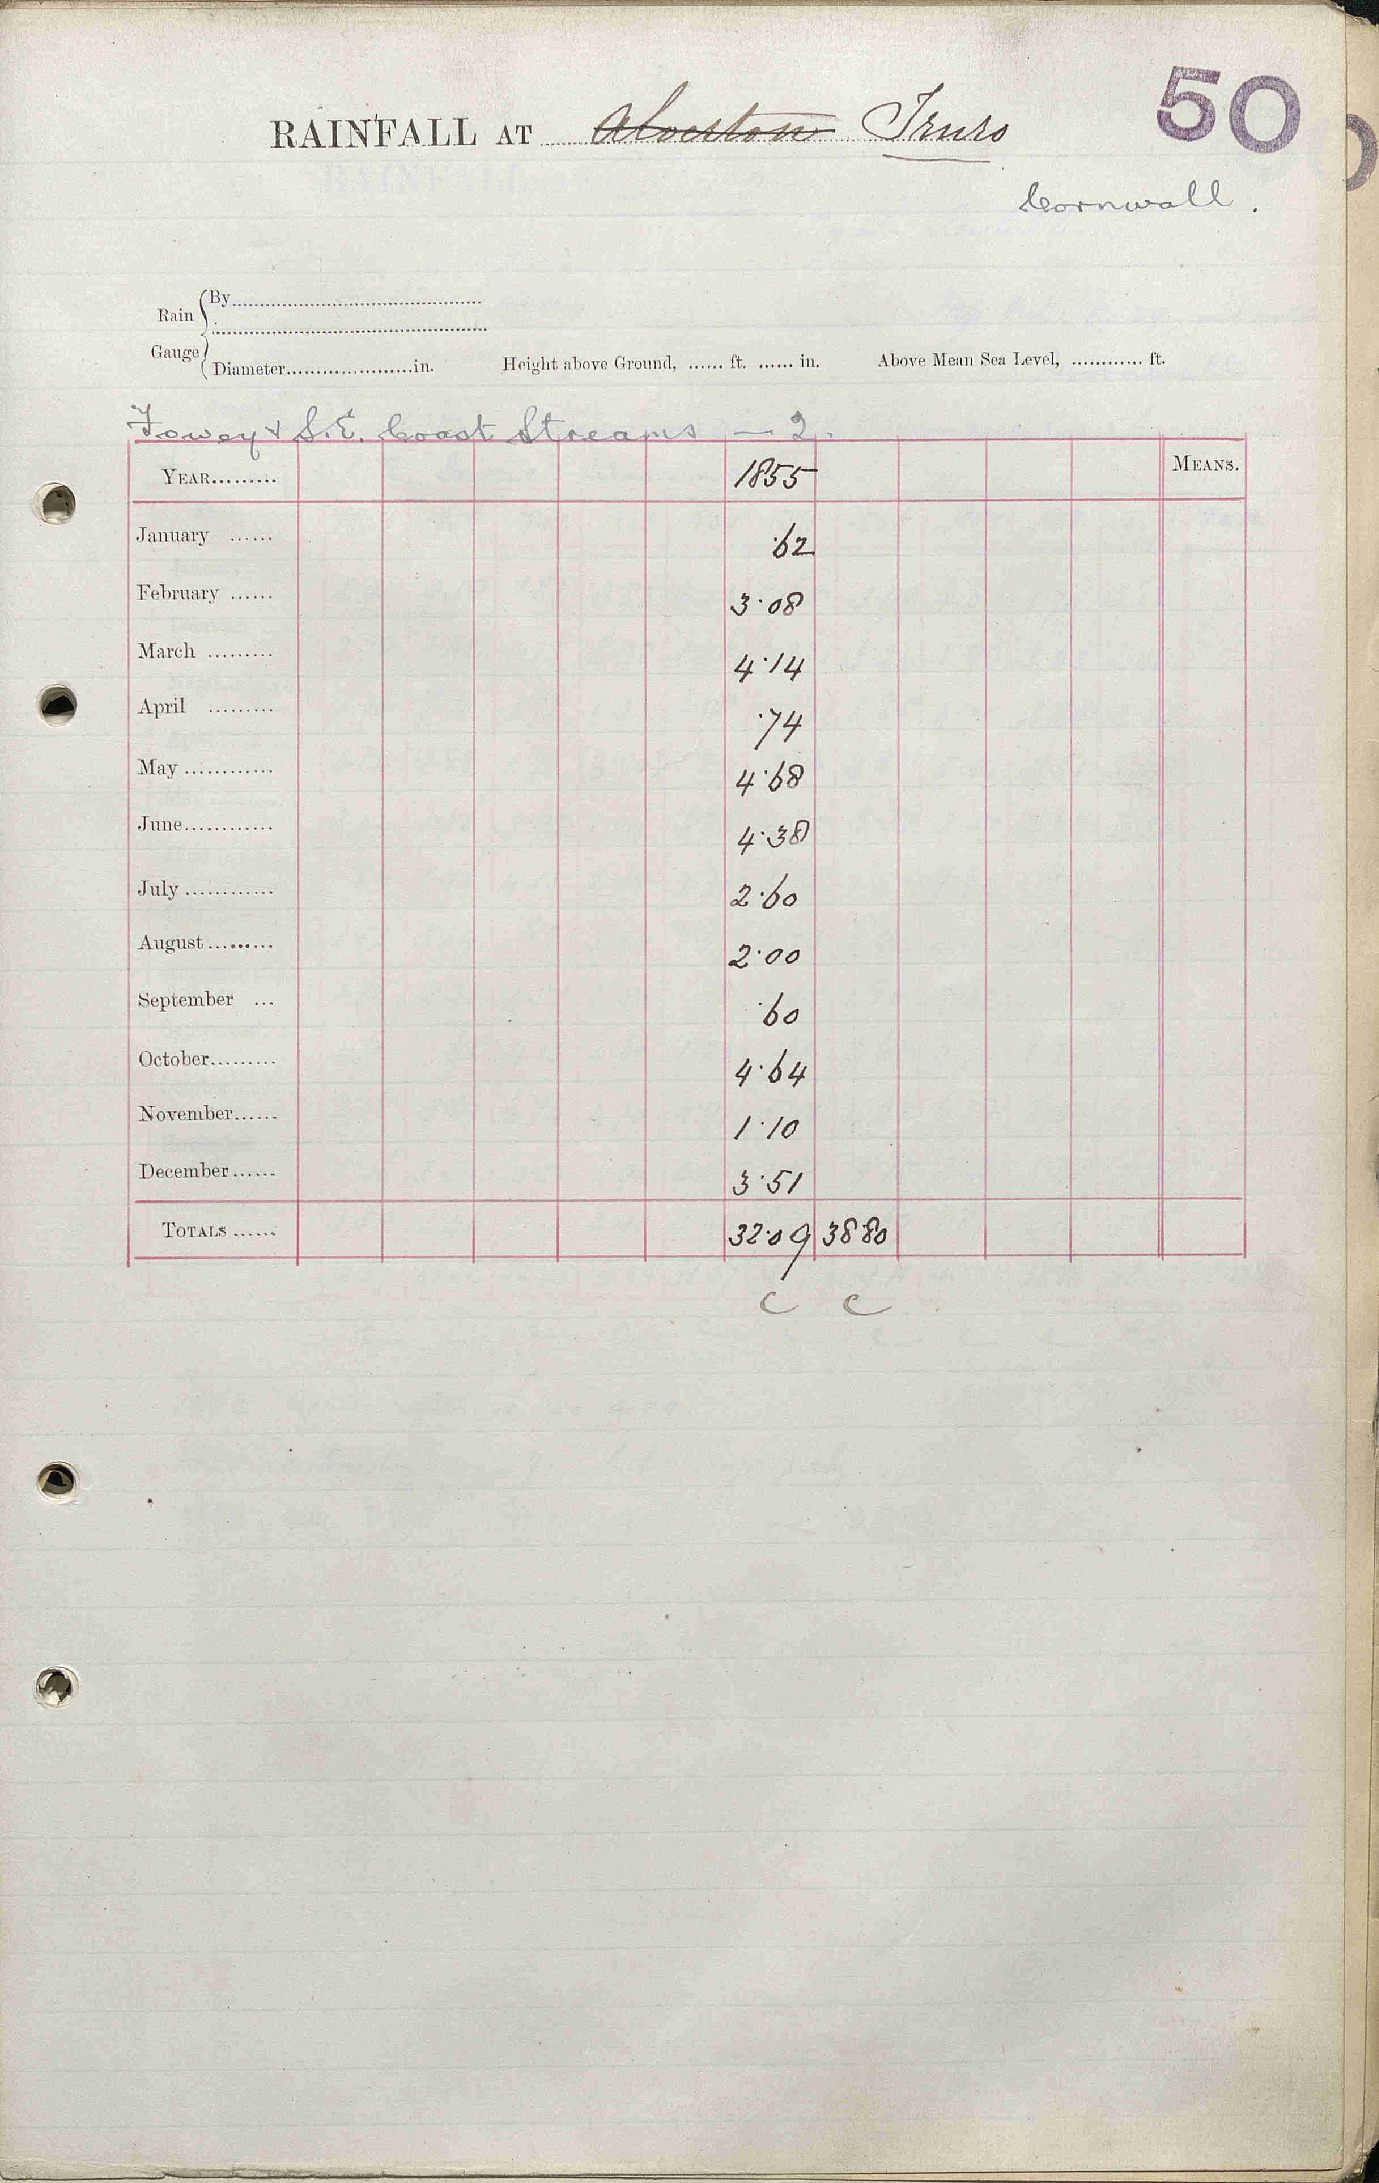 50
RAINFALL AT Alverton Truro
Cornwall.
Rain Gauge
By
Diameter in. Height above Ground, ...... ft. ...... in. Above Mean Sea Level, ............ ft.
Fowey & S.E. Coast Streams — 2.
YEAR......... 1855 MEANS.
January ...... ·62
February ...... 3·08
March ......... 4·14
April ......... ·74
May ............ 4·68
June............ 4·38
July ............ 2·60
August ......... 2·00
September ... ·60
October......... 4·64
November...... 1·10
December...... 3·51
TOTALS ...... 32·09 38 80
C C